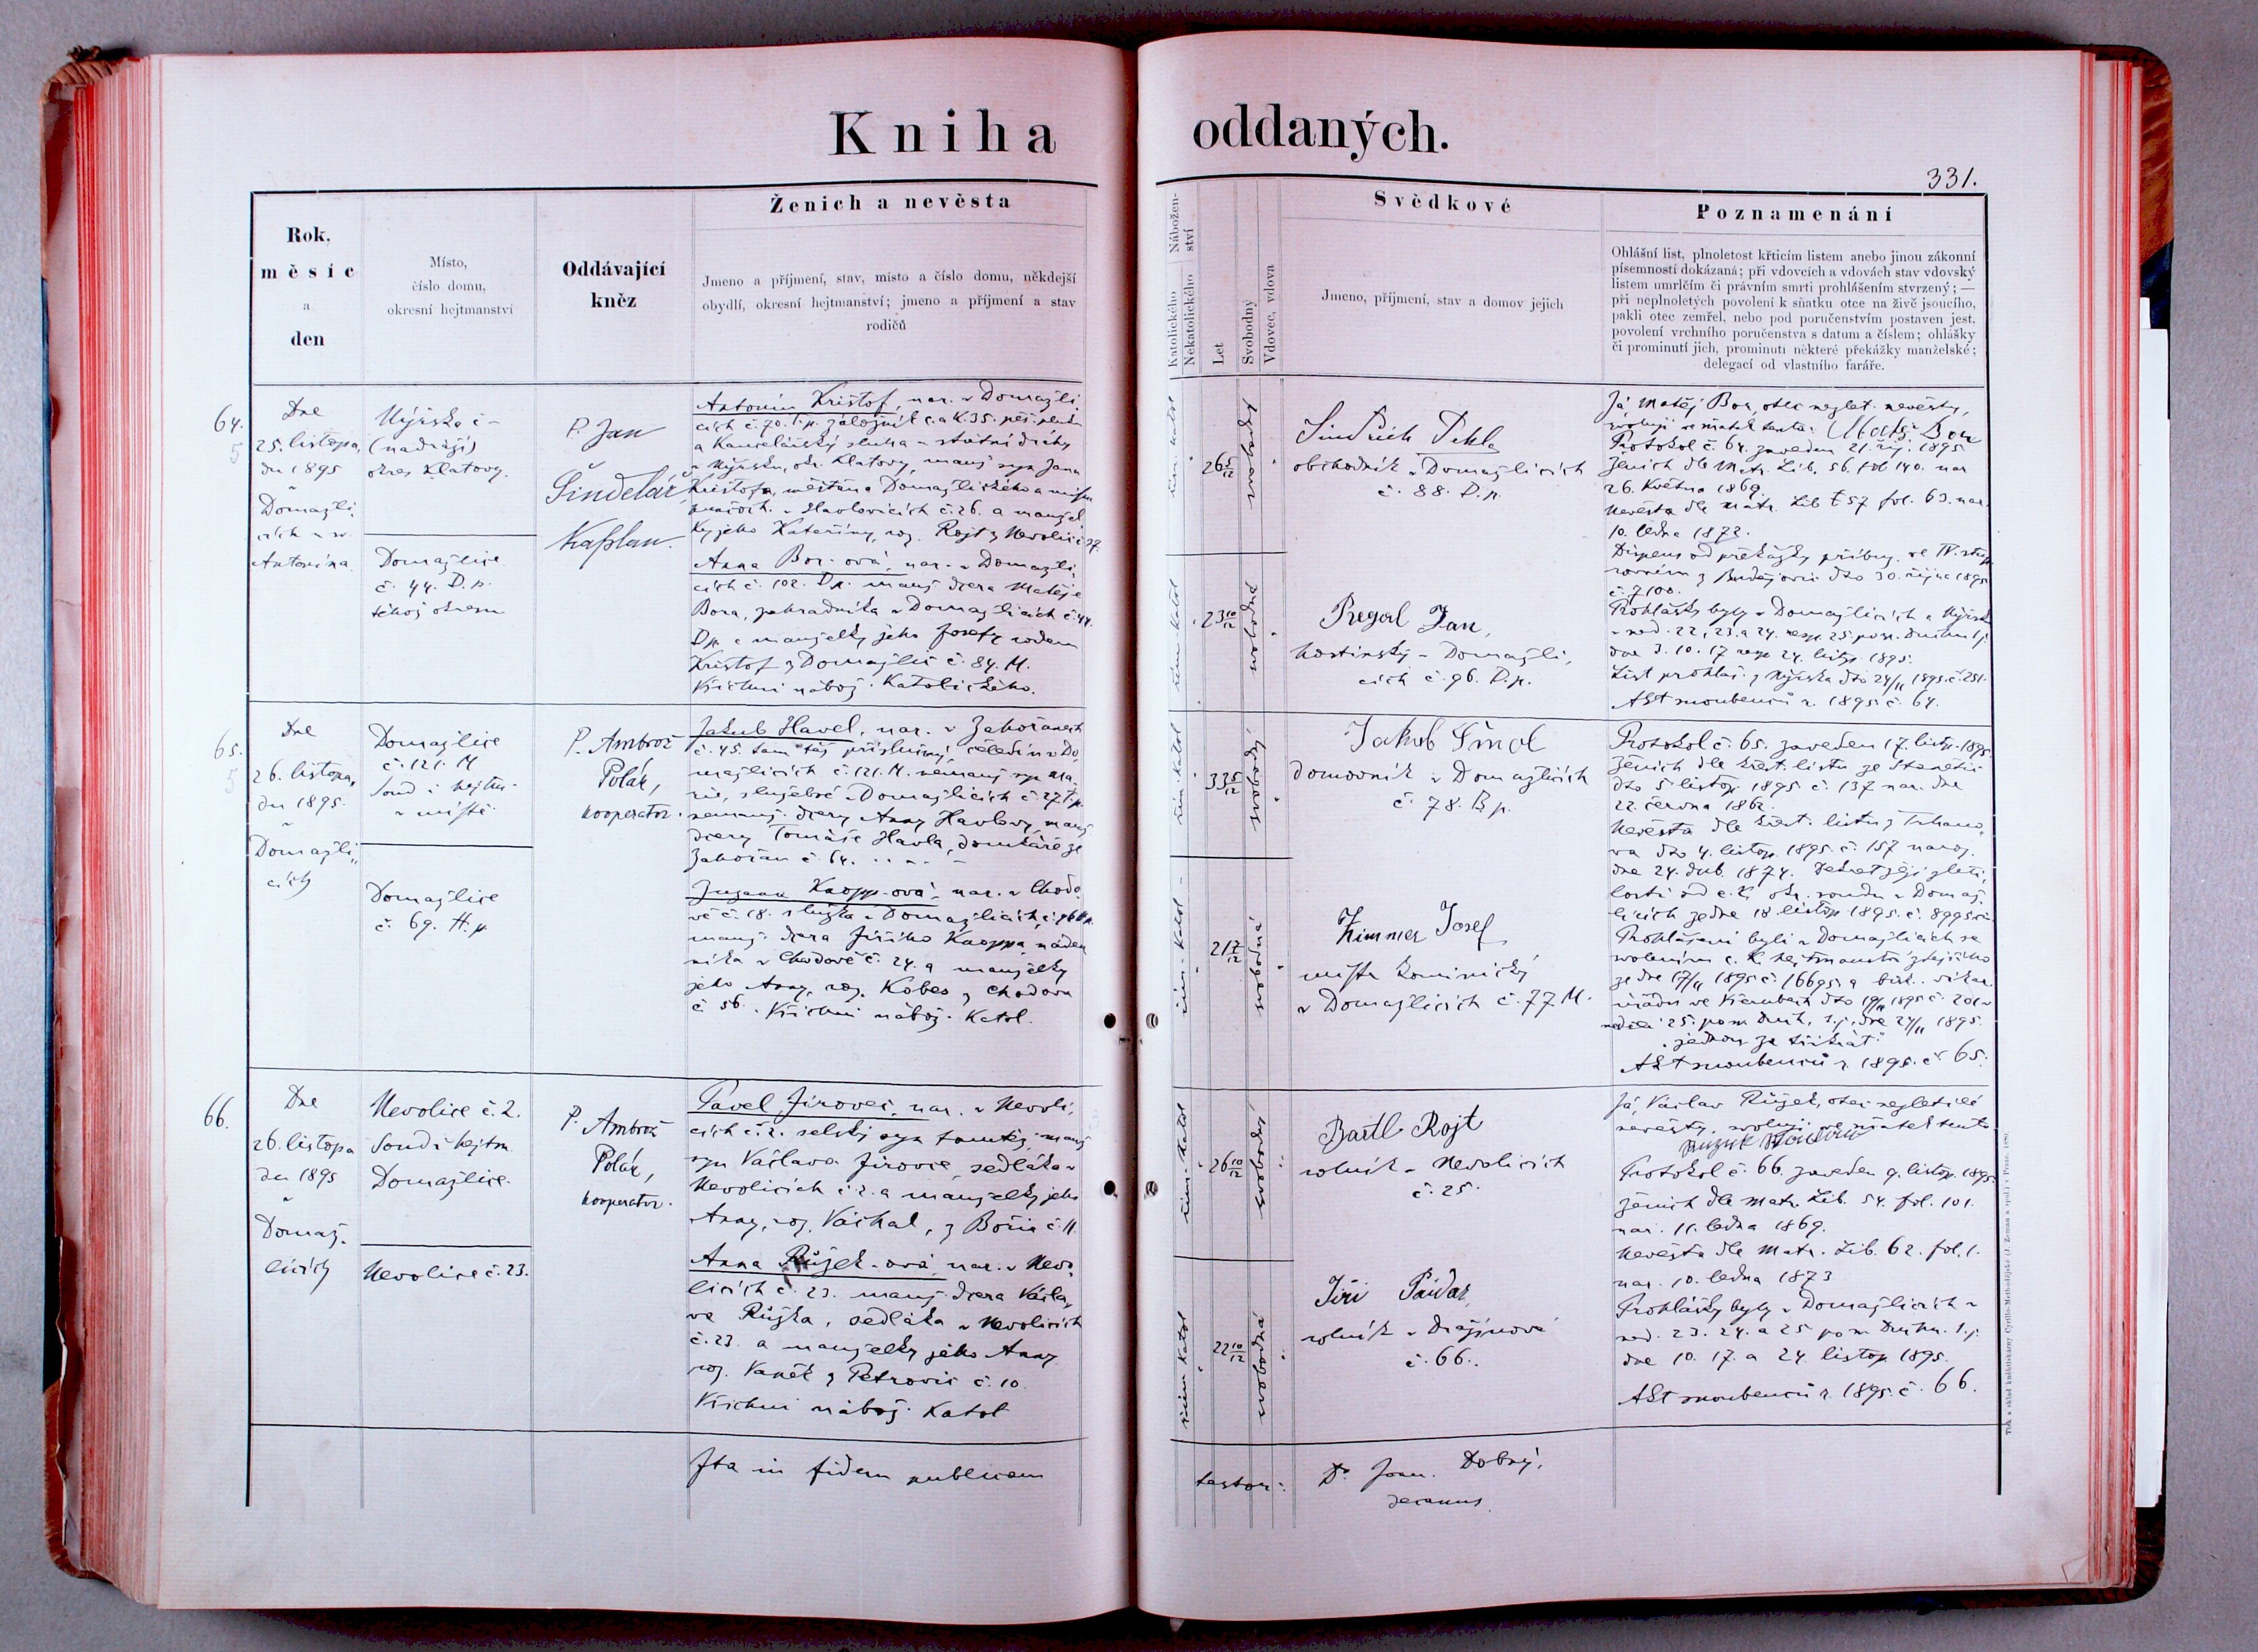 Kniha oddaných.
331.
Rok,
měsíc
a
den
Místo,
číslo domu,
okresní hejtmanství
Oddávající
kněz
Ženich a nevěsta
Jmeno a příjmení, stav, místo a číslo domu, někdejší
obydlí, okresní hejtmanství; jmeno a příjmení a stav
rodičů
Katolického
Nekatolického
Nábožen-
ství
Let
Svobodný
Vdovec, vdova
Svědkové
Jmeno, příjmení, stav a domov jejich
Poznamenání
Ohlášní list, plnoletost křticím listem anebo jinou zákonní
písemností dokázaná; při vdovcích a vdovách stav vdovský
listem umrlčím či právním smrti prohlášením stvrzený; —
při neplnoletých povolení k sňatku otce na živě jsoucího,
pakli otec zemřel, nebo pod poručenstvím postaven jest,
povolení vrchního poručenstva s datum a číslem; ohlášky
či prominutí jich, prominutí některé překážky manželské;
delegací od vlastního faráře.
64.
Dne
25. listopa,
du 1895
v
Domažli,
cích u sv.
Antonína.
Nýrsko č -
(nádraží)
okres Klatovy.
Domažlice
č. 44. D. p.
téhož okresu
P. Jan
Šindelář,
kaplan.
Antonín Krištof, nar. v Domažli,
cích č. 70. záložník c. a k. 35. pěš. pluku
a kancelářský sluha státní dráhy
v Nýrsku, okr. Klatovy, manž. syn Jana
Krištofa, měšťana Domažlického a
v Havlovicích č. 26. a manžel,
ky jeho Kateřiny, roz. Rojt z Nevolic č. 27.
Anna Bor-ová, nar. v Domažli,
cích č. 102. D.p. manž. dcera Matěje
Bora, zahradníka v Domažlicích č. 44.
D.p. a manželky jeho Josefy rodem
Krištof z Domažlic č. 84. M.
Všichni nábož. Katolického.
řím. katol
26 5/12
svobodný
řím. katol
23 10/12
svobodná
Jindřich Pekla
obchodník v Domažlicích
č. 88. D.p.
Regal Jan,
hostinský v Domažli,
cích č. 96. D.p.
Já, Matěj Bor, otec nezlet. nevěsty,
svoluji ve sňatek tento: Matěj Bor
Protokol č. 64. zaveden 21. říj. 1895
Ženich dle Matr. Lib. 56. fol 140. nar
26. května 1869.
Nevěsta dle Matr. Lib. 57 fol. 63. nar.
10. ledna 1872.
Dispens od překážky příbuz. ve IV. stup.
rovném z Budějovic dto 30. října 1895
č. 7100.
Prohlášky byly v Domažlicích a Nýrsku
v ned. 22, 23. a 24. resp. 25. po sv. Duchu t.j.
dne 3. 10. 17 resp 24. listop. 1895.
List prohláš. z Nýrska dto 24/11 1895. č. 251.
Akt snoubenců r. 1895 č. 64.
65.
Dne
26. listopa,
du 1895.
v
Domažli,,
cích
Domažlice
č. 121. M
soud i hejtm.
v místě
Domažlice
č. 69. H.p.
P. Ambrož
Polák,
kooperator.
Jakub Havel, nar. v Zahořanech
č. 45. tam též příslušný, čeledín v Do,
mažlicích č. 121. M. nemanž. syn Ma,
rie, služebné v Domažlicích č. 27 T.p.
nemanž. dcery Anny Havlovy, manž.
dcery Tomáše Havla, domkáře ze
Zahořan č. 64. . . - . -
Zuzana Knopp-ová, nar. v Chodo,
vě č. 18. služka v Domažlicích,
manž. dcera Jiřího Knoppa, náden
níka v Chodově č. 24. a manželky
jeho Anny, roz. Kobes z Chodova
č. 56. Všichni nábož. Katol.
řím. katol
33 5/12
svobodný
řím. katol
21 7/12
svobodná
Jakub Šmol
domovník v Domažlicích
č. 78. B p.
Zimmer Josef,
mistr kominický
v Domažlicích č. 77 M.
Protokol č. 65. zaveden 17. listop. 1895.
Ženich dle křest. listu ze Stanětic
dto 5 listop. 1895 č. 137 nar. dne
22. června 1862.
Nevěsta dle křest. listu z Trhano,
va dto 4. listop. 1895. č. 157 naroz.
dne 24. dub. 1874. Dekret její zleti,
losti od c. k. okr. soudu v Domaž,
licích ze dne 18 listop 1895. č. 8995
Prohlášeni byli v Domažlicích se
svolením c. k. hejtmanství zdejšího
ze dne 17/11 1895 č. 16695. a bisk. vikar.
úřadu ve Kdyni dto 19/11 1895 č. 201 v
neděli 25. po sv. Duch. t.j. dne 24/11 1895.
„jednou za třikrát“
Akt snoubenců r. 1895. č. 65.
66.
Dne
26. listopa
du 1895
v
Domaž,
licích
Nevolice č. 2.
Soud i hejtm.
Domažlice.
Nevolice č. 23.
P. Ambrož
Polák,
kooperator.
Pavel Jírovec, nar. v Nevoli,
cích č. 2. selský syn tamtéž, manž.
syn Václava Jírovce, sedláka v
Nevolicích č. 2. a manželky jeho
Anny, roz. Váchal, z Bořic č. 11.
Anna Růžek-ová, nar. v Nevo,
licích č. 23. manž. dcera Václa,
va Růžka, sedláka v Nevolicích
č. 23. a manželky jeho Anny
roz. Vaněk z Petrovic č. 10.
Všichni nábož. Katol
řím. katol
26 10/12
svobodný
řím katol
22 10/12
svobodná
Bartl Rojt
rolník v Nevolicích
č. 25.
Jiří Paidar,
rolník v Dražinově
č. 66.
Já, Václav Růžek, otec nezletilé
nevěsty, svoluji ve sňatek tento
Protokol č. 66. zaveden 9. listop. 1895.
Ženich dle Matr. Lib. 54. fol. 101.
nar. 11. ledna 1869.
Nevěsta dle Matr. Lib. 62. fol. 1.
nar. 10. ledna 1873
Prohlášky byly v Domažlicích v
ned. 23. 24. a 25 po sv. Duchu. t.j.
dne 10. 17. a 24. listop. 1895.
Akt snoubenců r. 1895. č. 66.
Ita in fidem publicam testor: Dr. Joan. Dobrý,
decanus.